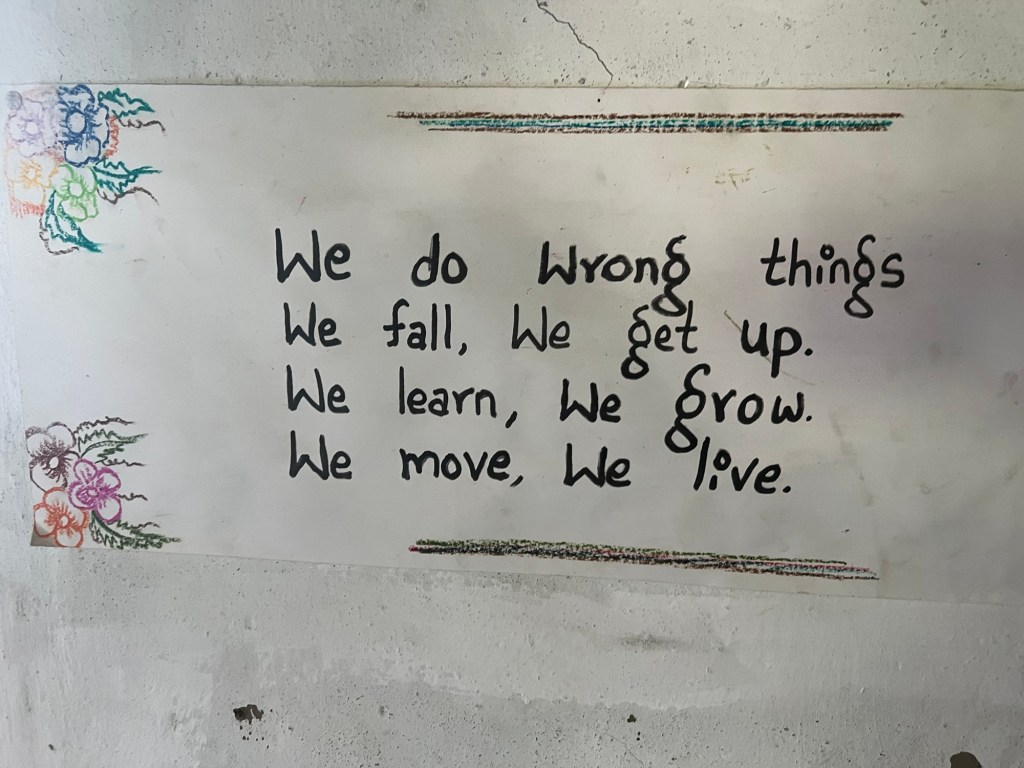 We do Wrong things
We fall, We get up.
We learn, We grow.
We move, We live.